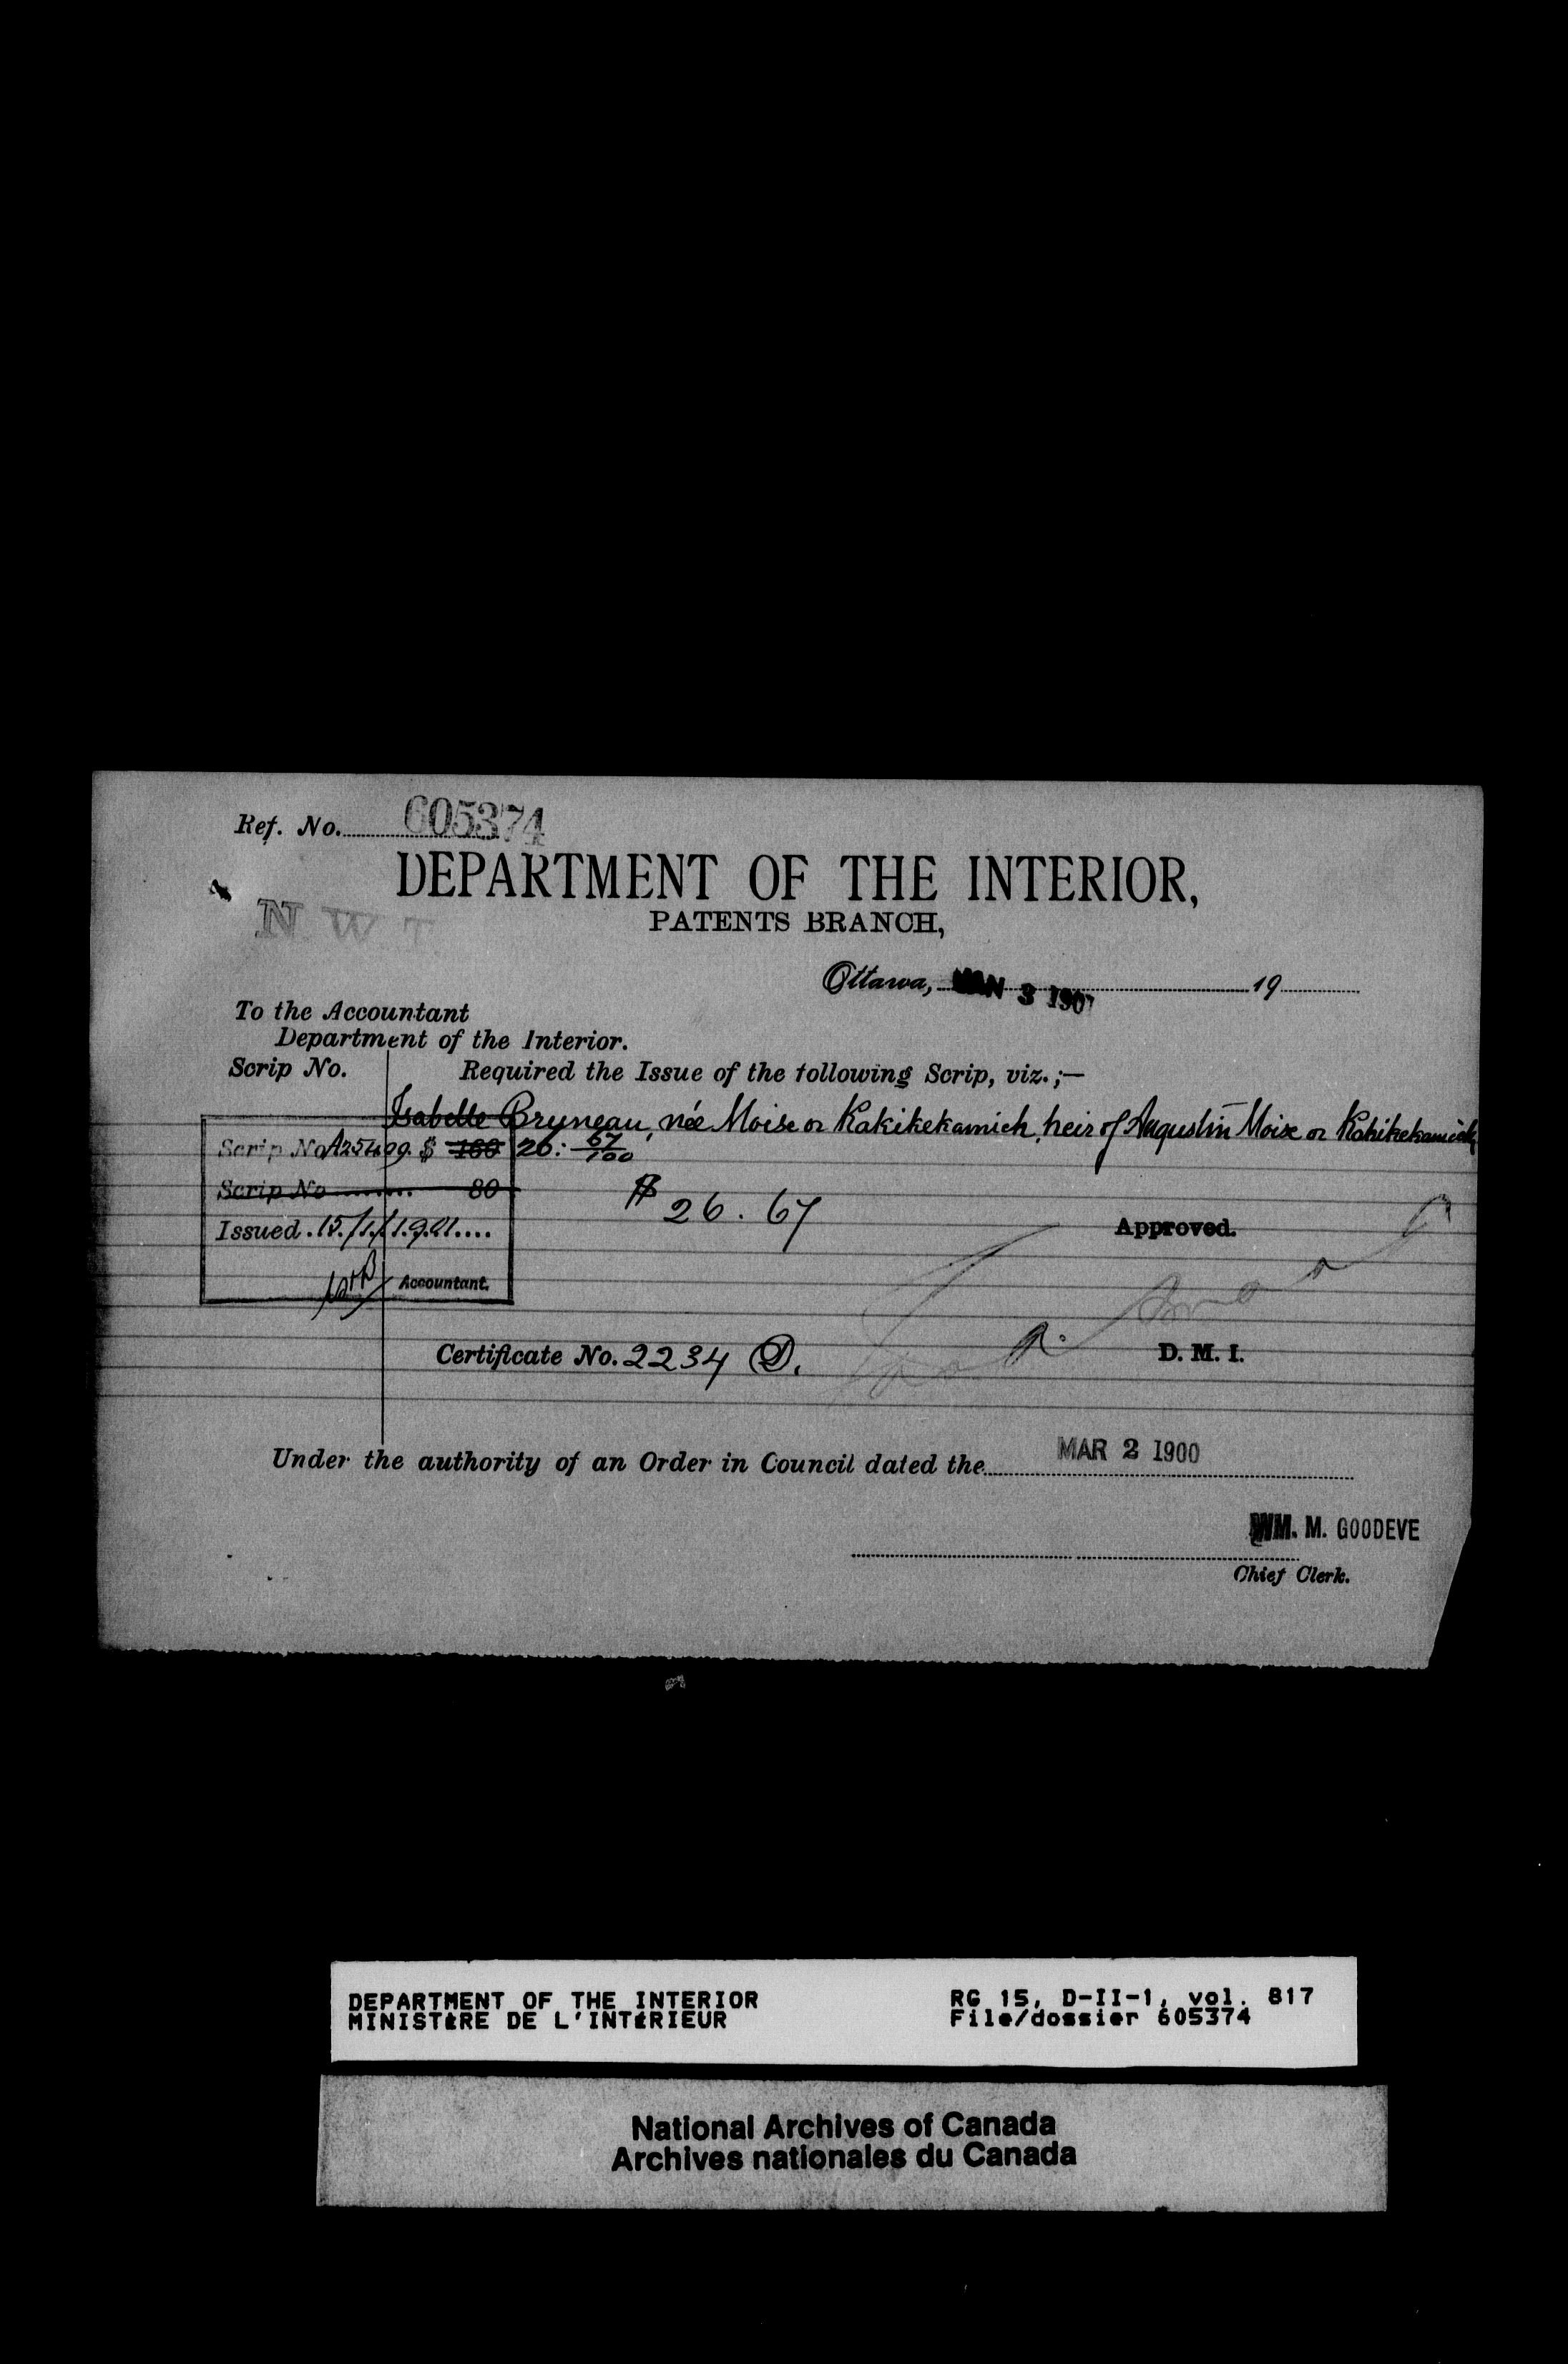 Ref. No. 605374
DEPARTMENT OF THE INTERIOR,
N W T
PATENTS BRANCH,
Ottawa, JAN 3 190 19
To the Accountant
Department of the Interior.
Scrip No. Required the Issue of the following Scrip, viz.;—
Isabelle Bryneau, née Moise or Kakikekamich, heir of Augustin Moise or Kakikekamich
Scrip No A25499. $ 160 26: 67/100
Scrip No ........... 80
$ 26.67
Issued. 15./1./1.9.01....
Approved.
Accountant.
Certificate No. 2234 D.
D. M. I.
Under the authority of an Order in Council dated the MAR 2 1900
WM. M. GOODEVE
Chief Clerk.
DEPARTMENT OF THE INTERIOR RG 15, D-II-1, vol. 817
MINISTÈRE DE L'INTÉRIEUR File/dossier 605374
National Archives of Canada
Archives nationales du Canada